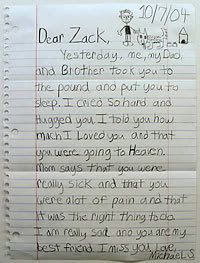 10/7/04
Dear Zack,
Yesterday, me, my Dad,
and Brother took you to
the pound and put you to
sleep. I cried so hard and
Hugged you, I told you how
much I Loved you and that
you were going to Heaven.
Mom says that you were
really sick and that you
were alot of pain and that
it was the right thing to do.
I am really sad and you are my
best friend. I miss you. Love,
Michael S.